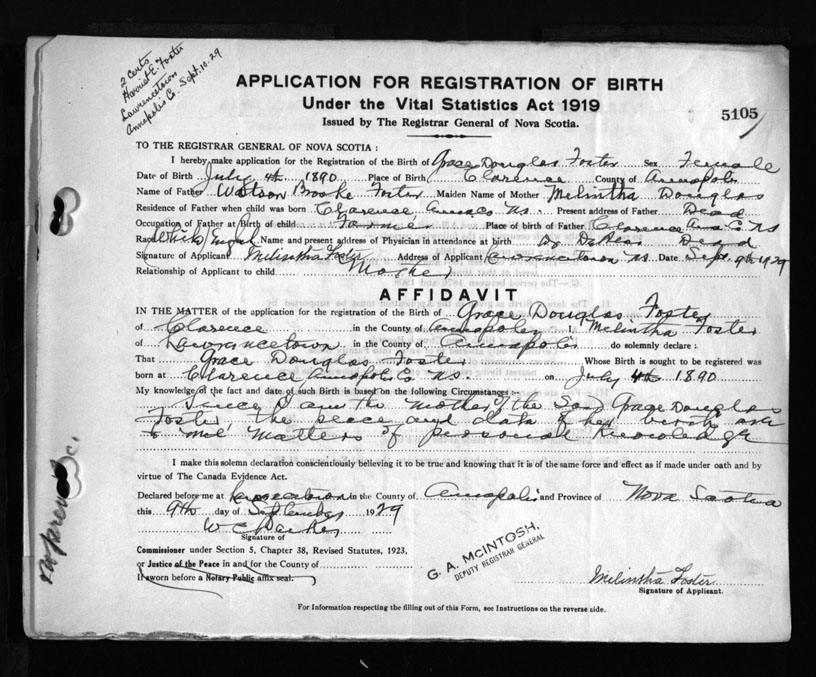 2 Certs
Harriet E. Foster
Lawrencetown
Annapolis Co. Sept. 10-29
APPLICATION FOR REGISTRATION OF BIRTH
Under the Vital Statistics Act 1919
Issued by The Registrar General of Nova Scotia.
5105
TO THE REGISTRAR GENERAL OF NOVA SCOTIA :
I hereby make application for the Registration of the Birth of Grace Douglas Foster Sex Female
Date of Birth July 4th 1890 Place of Birth Clarence County of Annapolis
Name of Father Watson Brooke Foster Maiden Name of Mother Melintha Douglas
Residence of Father when child was born Clarence, Anna Co NS. Present address of Father Dead
Occupation of Father at Birth of child Farmer Place of birth of Father Clarence Anna Co. NS
Race White English Name and present address of Physician in attendance at birth Dr Dead
Signature of Applicant Melintha Foster Address of Applicant Lawrencetown NS Date Sept. 9th 1929
Relationship of Applicant to child Mother
AFFIDAVIT
IN THE MATTER of the application for the Registration of the Birth of Grace Douglas Foster
of Clarence in the County of Annapolis I, Melintha Foster
of Lawrencetown in the County of Annapolis do solemnly declare :
That Grace Douglas Foster Whose Birth is sought to be registered was
born at Clarence Annapolis Co NS. on July 4th 1890
My knowledge of the fact and date of such Birth is based on the following Circumstances :-
Since I am the mother of the said Grace Douglas
Foster, the place and date of her birth are
to me matters of personal knowledge
I make this solemn declaration conscientiously believing it to be true and knowing that it is of the same force and effect as if made under oath and by
virtue of The Canada Evidence Act.
Declared before me at Lawrencetown in the County of Annapolis and Province of Nova Scotia
this 9th day of September 1929
W C Parker
Signature of
Commissioner under Section 5, Chapter 38, Revised Statutes, 1923,
or Justice of the Peace in and for the County of
If sworn before a Notary Public affix seal.
G. A. McINTOSH,
DEPUTY REGISTRAR GENERAL
Melintha Foster
Signature of Applicant.
For Information respecting the filling out of this Form, see Instructions on the reverse side.